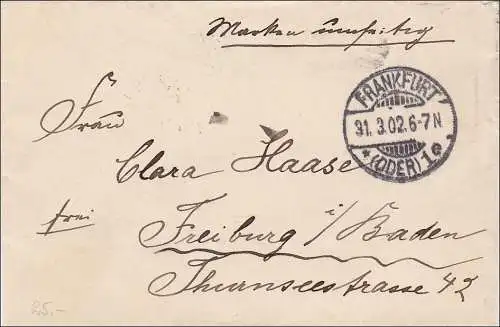 Marken umseitig
FRANKFURT
31.3.02.6-7N
* (ODER) 1 e
Frau
Clara Haase
frei
Freiburg i/Baden
Thurnseestrasse 42
25.-